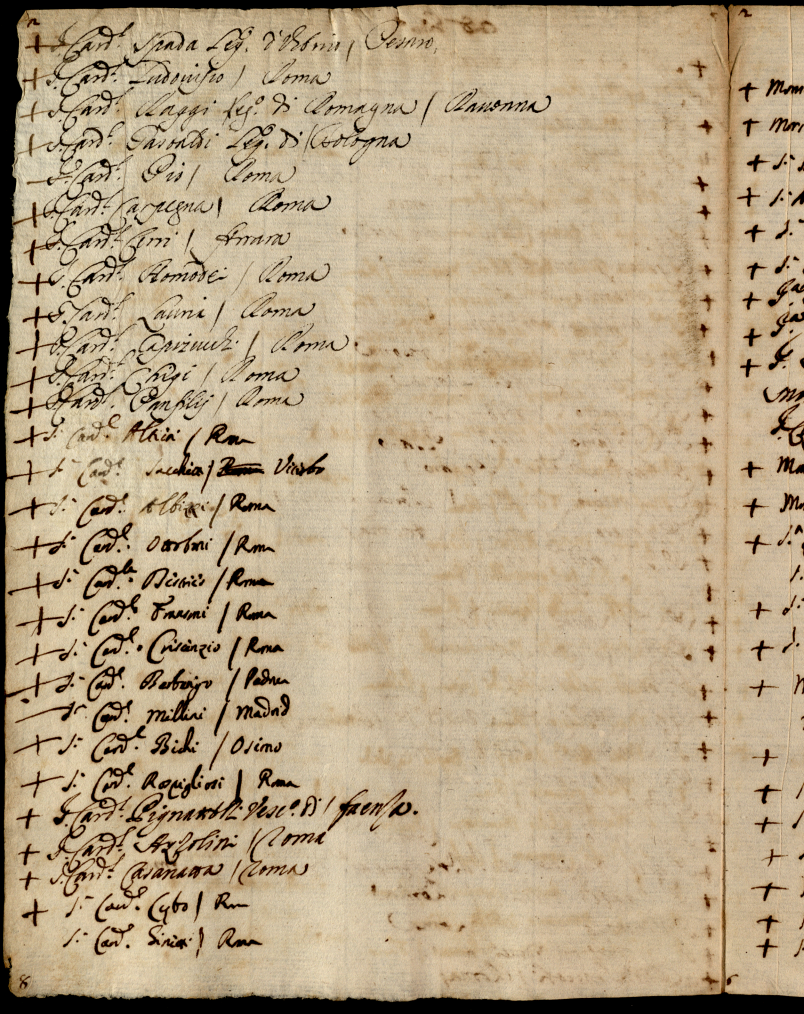 2
+ S. Card.l Spada Leg. d'Urbino / Pesaro.
+ S. Card.l Ludovisio / Roma
+ S. Card.l Raggi Leg.o di Romagna / Ravenna
+ S. Card.l Gastaldi Leg. di / Bologna
+ S. Card.l Pio / Roma
+ S. Card.l Carpegna / Roma
+ S. Card.l Cerri / ferrara
+ S. Card.l Homodei / Roma
+ S. Card.l Lauria / Roma
+ S. Card.l Capizucchi / Roma.
+ S. Card.l Chigi / Roma
+ S. Card.l Panfilij / Roma
+ S.r Card.l Altieri / Roma
+ S.r Card.l Sacchetti / Roma Viterbo
+ S.r Card.l Albizzi / Roma
+ S.r Card.l Ottoboni / Roma
+ S.r Card.le Bichi / Roma
+ S.r Card.l / Roma
+ S.r Card.l Crisenzio / Roma
+ S.r Card.l Barbarigo / Padua
S.r Card.l Millini / Madrid
+ S.r Card.l Bichi / Osimo
+ S.r Card.l Rospigliosi / Roma
+ S. Card.l Pignattelli Vesc.o di / faenza.
+ S. Card.l Azzolini / Roma
+ S. Card.l Casanatta / Roma
+ S.r Card.l Cybo / Rom
S.r Card.l / Roma
8
2
6